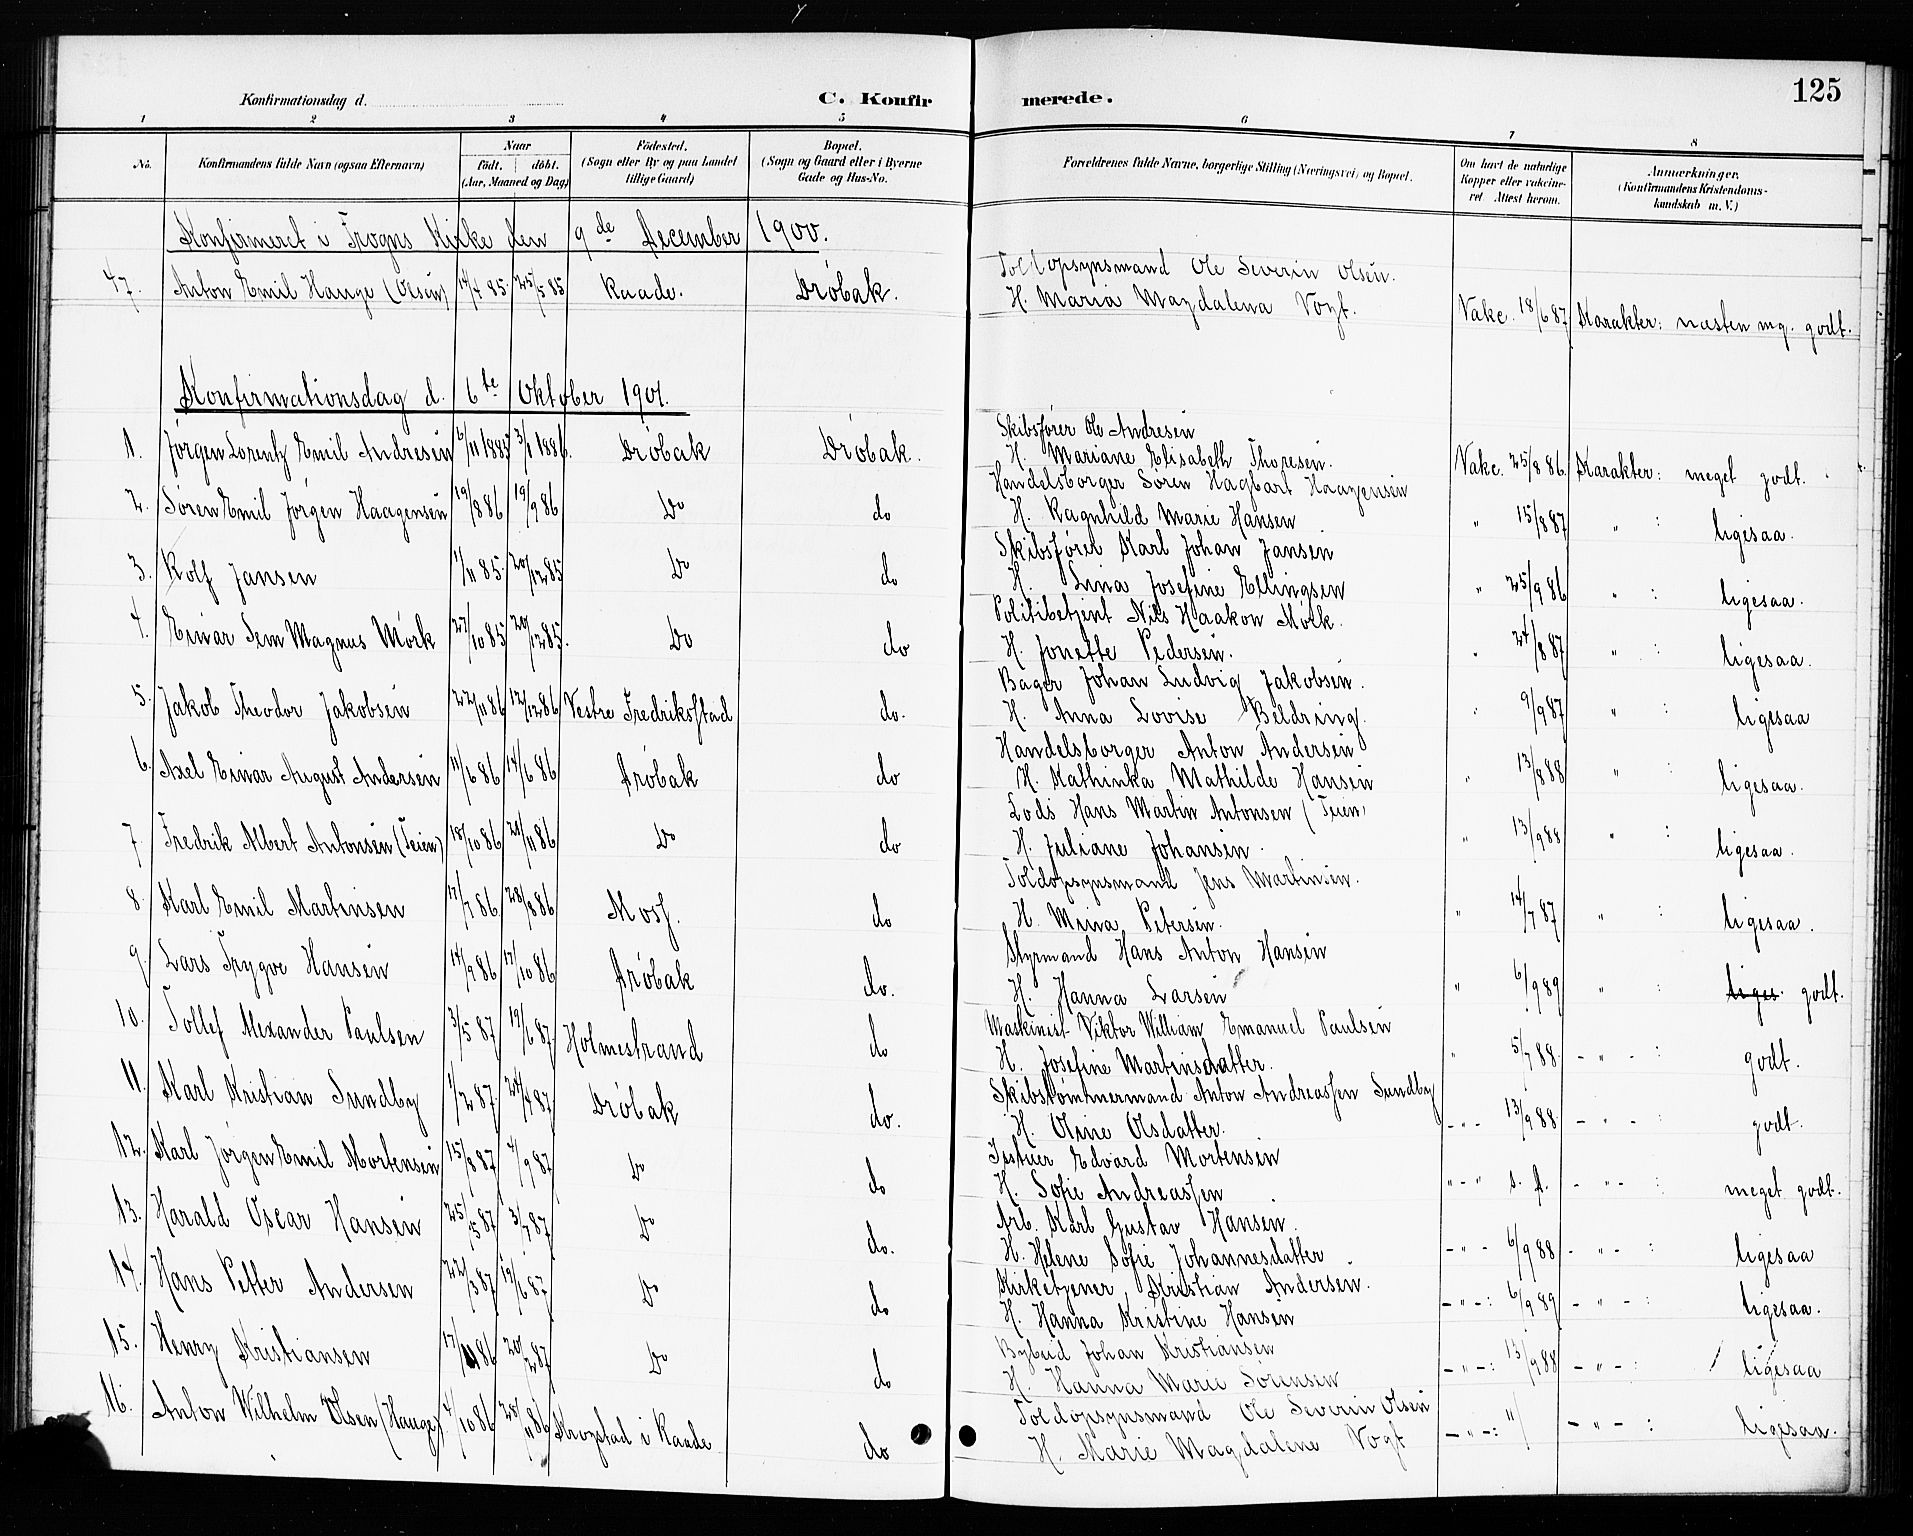 125
Konfirmationsdag d.
C. Konfirmerede.
1 2 3 4 5 6 7 8
No. Konfirmandens fulde Navn (ogsaa Efternavn) Naar født. døbt. (Aar, Maaned og Dag) Fødested. (Sogn eller By og paa Landet tillige Gaard) Bopæl. (Sogn og Gaard eller i Byerne Gade og Hus-No. Forældrenes fulde Navne, borgerlige Stilling (Næringsvei) og Bopæl. Om havt de naturlige Kopper eller vakcineret Attest herom. Anmærkninger. (Konfirmandens Kristendomskundskab m. V.)
Konfirmeret i Frogns Kirke den 9de December 1900.
47. Anton Emil Hauge (Olsen) 14/4 85. 25/5 85 Raade. Drøbak. Toldopsynsmand Ole Severin Olsen.
H. Maria Magdalena Vogt. Vakc. 18/6 87 Karakter: næsten mg. godt.
Konfirmationsdag d. 6te Oktober 1901.
1. Jørgen Lorentz Emil Andresen 6/11 1885 3/1 1886. Drøbak Drøbak. Skibsfører Ole Andresen
H. Mariane Elisabeth Thoresen. Vakc. 25/8 86. Karakter: meget godt.
2. Søren Emil Jørgen Haagensen 19/8 86 19/9 86 Do do Handelsborger Søren Hagbart Haagensen
H. Ragnhild Marie Hansen " 15/8 87 " : ligesaa.
3. Rolf Jansen 1/11 85. 20/12 85 Do do Skibsfører Karl Johan Jansen
H. Lina Josefine Ellingsen " 25/9 86 " : ligesaa.
4. Einar Sem Magnus Mørk 27/10 85 20/12 85. Do do Politibetjent Nils Haakon Mørk.
H. Jonette Pedersen. " 24/8 87 " : ligesaa.
5. Jakob Theodor Jakobsen 22/11 86 12/12 86 Vestre Fredriksstad do. Bager Johan Ludvig Jakobsen.
H. Anna Lovise Beldring. " 9/9 87 " : ligesaa
6. Axel Einar August Andersen 11/6 86 14/6 86 Drøbak do Handelsborger Anton Andersen
H. Kathinka Mathilde Hansen " 13/8 88 " : ligesaa.
7. Fredrik Albert Antonsen (Teien) 18/10 86 28/11 86 Do do Lods Hans Martin Antonsen (Teien)
H. Juliane Johansen. " 13/9 88 " : ligesaa.
8. Karl Emil Martinsen 17/7 86. 28/8 86 Moss. do Toldopsynsmand Jens Martinsen.
H. Mina Petersen. " 14/7 87 " : ligesaa.
9. Lars Trygve Hansen 14/9 86 17/10 86 Drøbak do. Styrmand Hans Anton Hansen
H. Hanna Larsen " 6/9 89 " : liges. godt.
10. Tollef Alexander Paulsen 3/5 87 19/6 87 Holmestrand do Maskinist Viktor William Emanuel Paulsen
H. Josefine Martinsdatter. " 5/7 88. - " - : godt.
11. Karl Kristian Sundby 1/2 87 24/4 87 Drøbak do. Skibstømmermand Anton Andreassen Sundby
H. Oline Olsdatter. - " - 13/9 88 - " - : godt.
12. Karl Jørgen Emil Mortensen 15/8 87 4/9 87 Do do Isstuer Edvard Mortensen
H. Sofie Andreassen " - " s. d. - " - : meget godt.
13. Harald Oscar Hansen 25/5 87 3/7 87 Do do. Arb. Karl Gustav Hansen.
H. Helene Sofie Johannesdatter - " - 6/9 88 - " - : ligesaa
14. Hans Petter Andersen 22/3 87 19/6 87 Do do Kirketjener Kristian Andersen.
H. Hanna Kristine Hansen - " - : 6/9 89 - " - : ligesaa.
15. Henry Kristiansen 17/11 86 20/2 87 Do do Bybud Johan Kristiansen
H. Hanna Marie Sørensen - " - : 13/9 88 - " - : ligesaa
16. Anton Wilhelm Olsen (Hauge) 4/10 86 28/11 86 Krogstad i Raade do Toldopsynsmand Ole Severin Olsen
H. Marie Magdalene Vogt - " - : - " - : ligesaa.